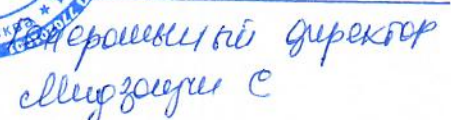 Генеральный директор
Мидзогучи С